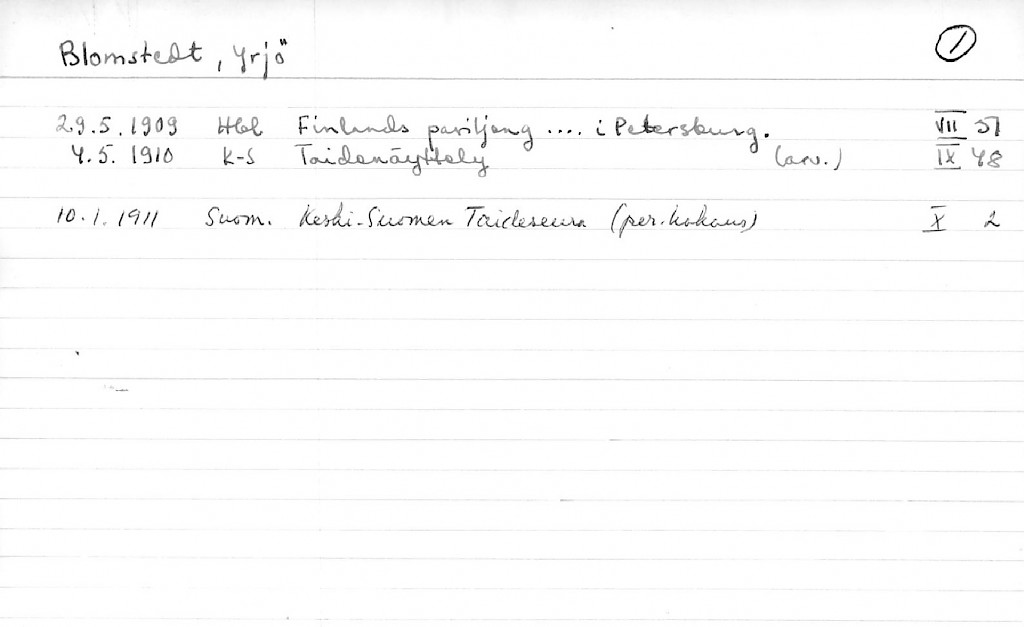 Blomstedt, Yrjö 1
29.5.1909 Hbl Finlands paviljong .... i Petersburg. VII 51
4.5.1910 K-S Taidenäyttely (arv.) IX 48
10.1.1911 Suom. Keski-Suomen Taideseura (per.kokous) X 2